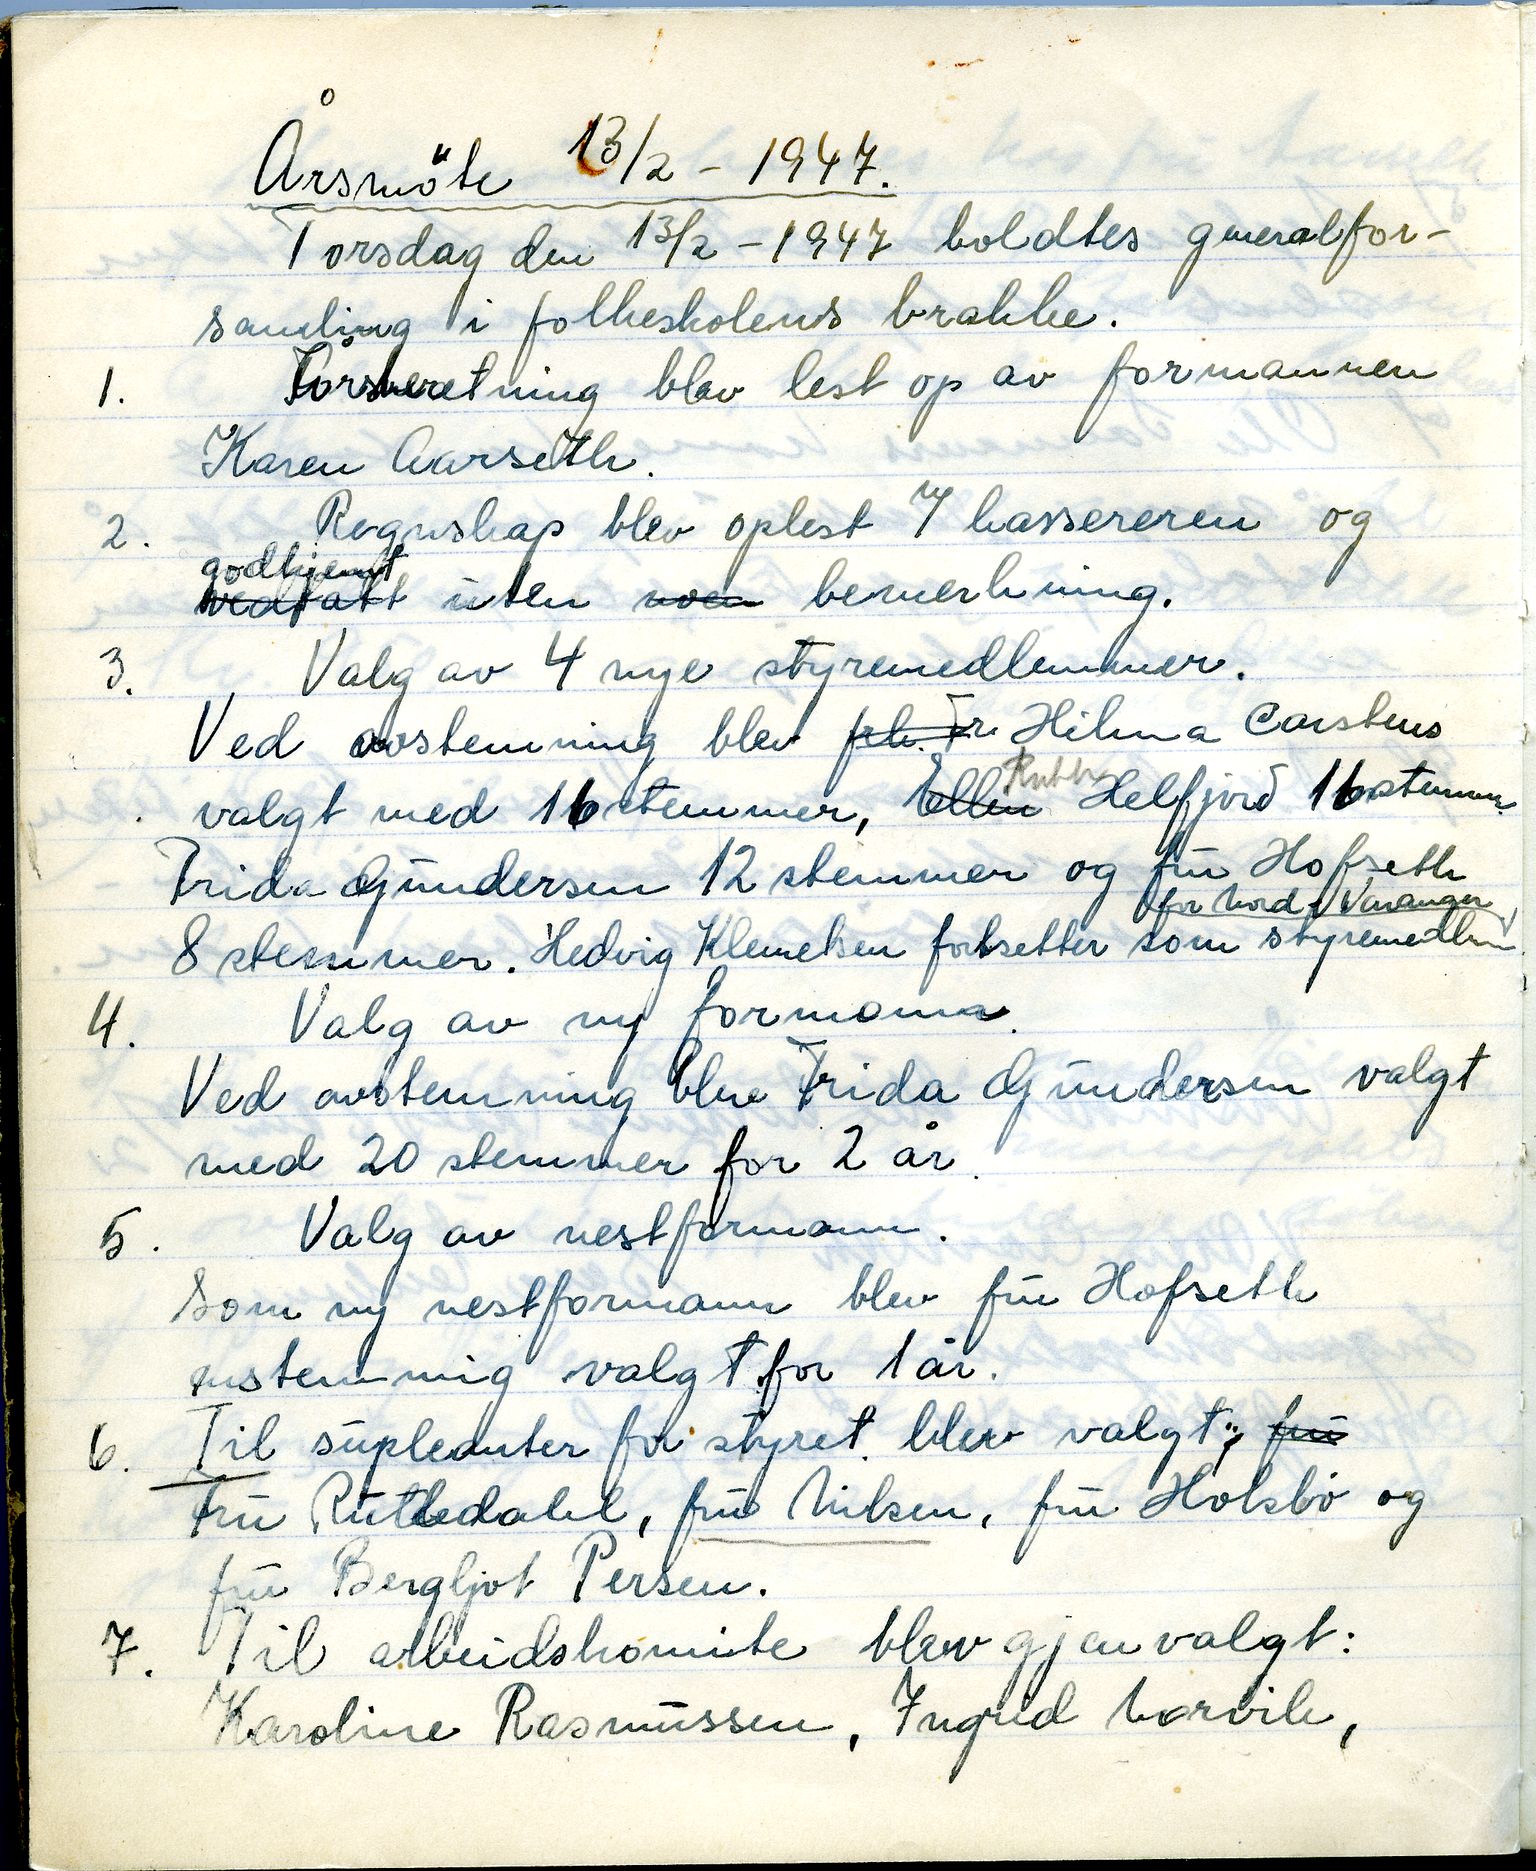 Årsmöte 13/2 - 1947.
Torsdag den 13/2 - 1947 holdtes generalfor-
samling i folkeskolens brakke.
1. Årsberetning blev lest op av formannen
Karen Aarseth.
2. Regnskap blev oplest av kassereren og
godkjent
vedtatt uten noen bemerkning.
3. Valg av 4 nye styremedlemmer.
Ved avstemning blev frk. Fr Hilma Carstens
Ruth
valgt med 16 stemmer, Ellen Helfjord 16 stemmer
Frida Gundersen 12 stemmer og fru Hofseth
for Nord-Varanger
8 stemmer. Hedvig Klemetsen fortsetter som styremedlem
4. Valg av ny formann.
Ved avstemning blev Frida Gundersen valgt
med 20 stemmer for 2 år.
5. Valg av nestformann.
Som ny nestformann blev fru Hofseth
enstemmig valgt for 1 år.
6. Til supleanter for styret blev valgt; fru
Fru Rutledahl, fru Nilsen, fru Holsbö og
fru Bergljot Persen.
7. Til arbeidskomite blev gjenvalgt:
Karoline Rasmussen, Ingrid Norvik,